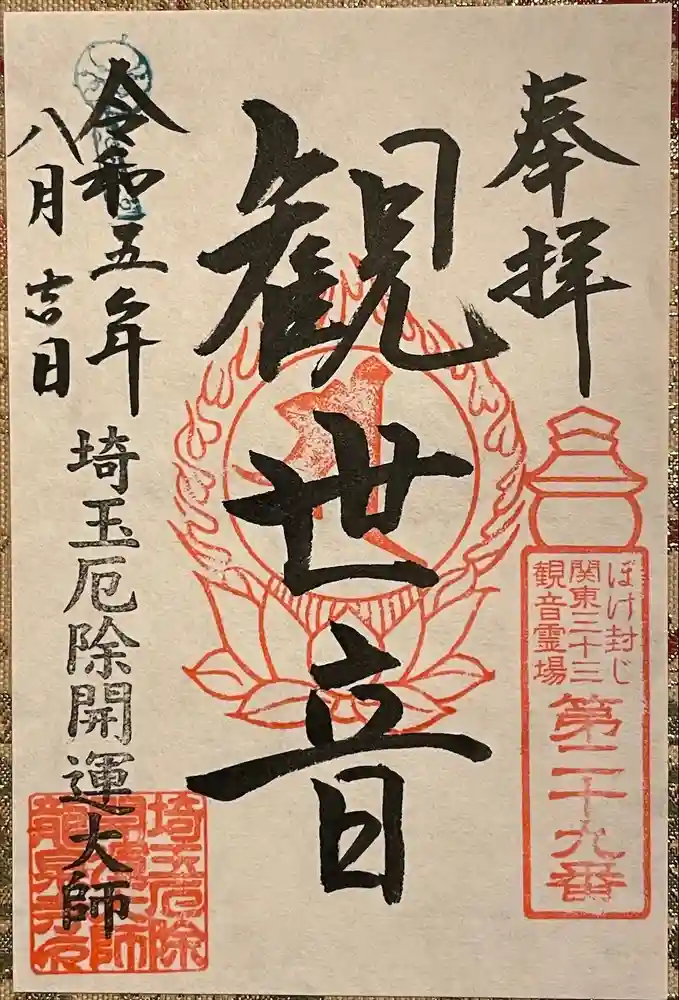 奉拝
ぼけ封じ
関東三十三
観音霊場
第二十九番
観世音
令和五年
八月吉日
埼玉厄除開運大師
埼玉厄除
開運大師
龍泉寺印